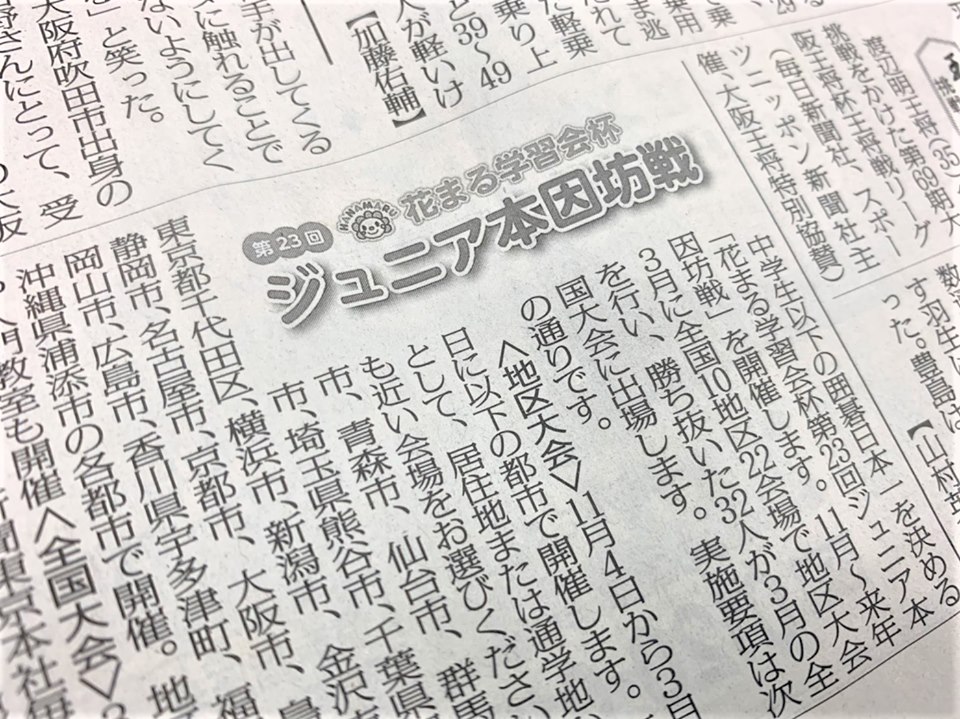 第23回
HANAMARU
花まる学習会杯
ジュニア本因坊戦
中学生以下の囲碁日本一を決める
「花まる学習会杯第23回ジュニア本
因坊戦」を開催します。11月～来年
3月に全国10地区22会場で地区大会
を行い、勝ち抜いた32人が3月の全
国大会に出場します。実施要項は次
の通りです。
＜地区大会＞11月4日から3月
日に以下の都市で開催します。
として、居住地または通学地
も近い会場をお選びくださ
市、青森市、仙台市、群馬
市、埼玉県熊谷市、千葉県
東京都千代田区、横浜市、新潟市、金沢
静岡市、名古屋市、京都市、大阪市、
岡山市、広島市、香川県宇多津町、福
沖縄県浦添市の各都市で開催。地
教室も開催＜全国大会＞
東京本社
渡辺明王将（35）
挑戦をかけた第69期大
阪王将杯王将戦リーグ
（毎日新聞社、スポー
ツニッポン新聞社主
催、大阪王将特別協賛）
す羽生に
った。豊島は
【山村英
乗用
ま逃
れて
た軽乗
乗り上
と39～49
人が軽いけ
【加藤佑輔】
手が出してくる
に触れることで
ないようにしてく
」と笑った。
大阪府吹田市出身の
さんにとって、受
大阪